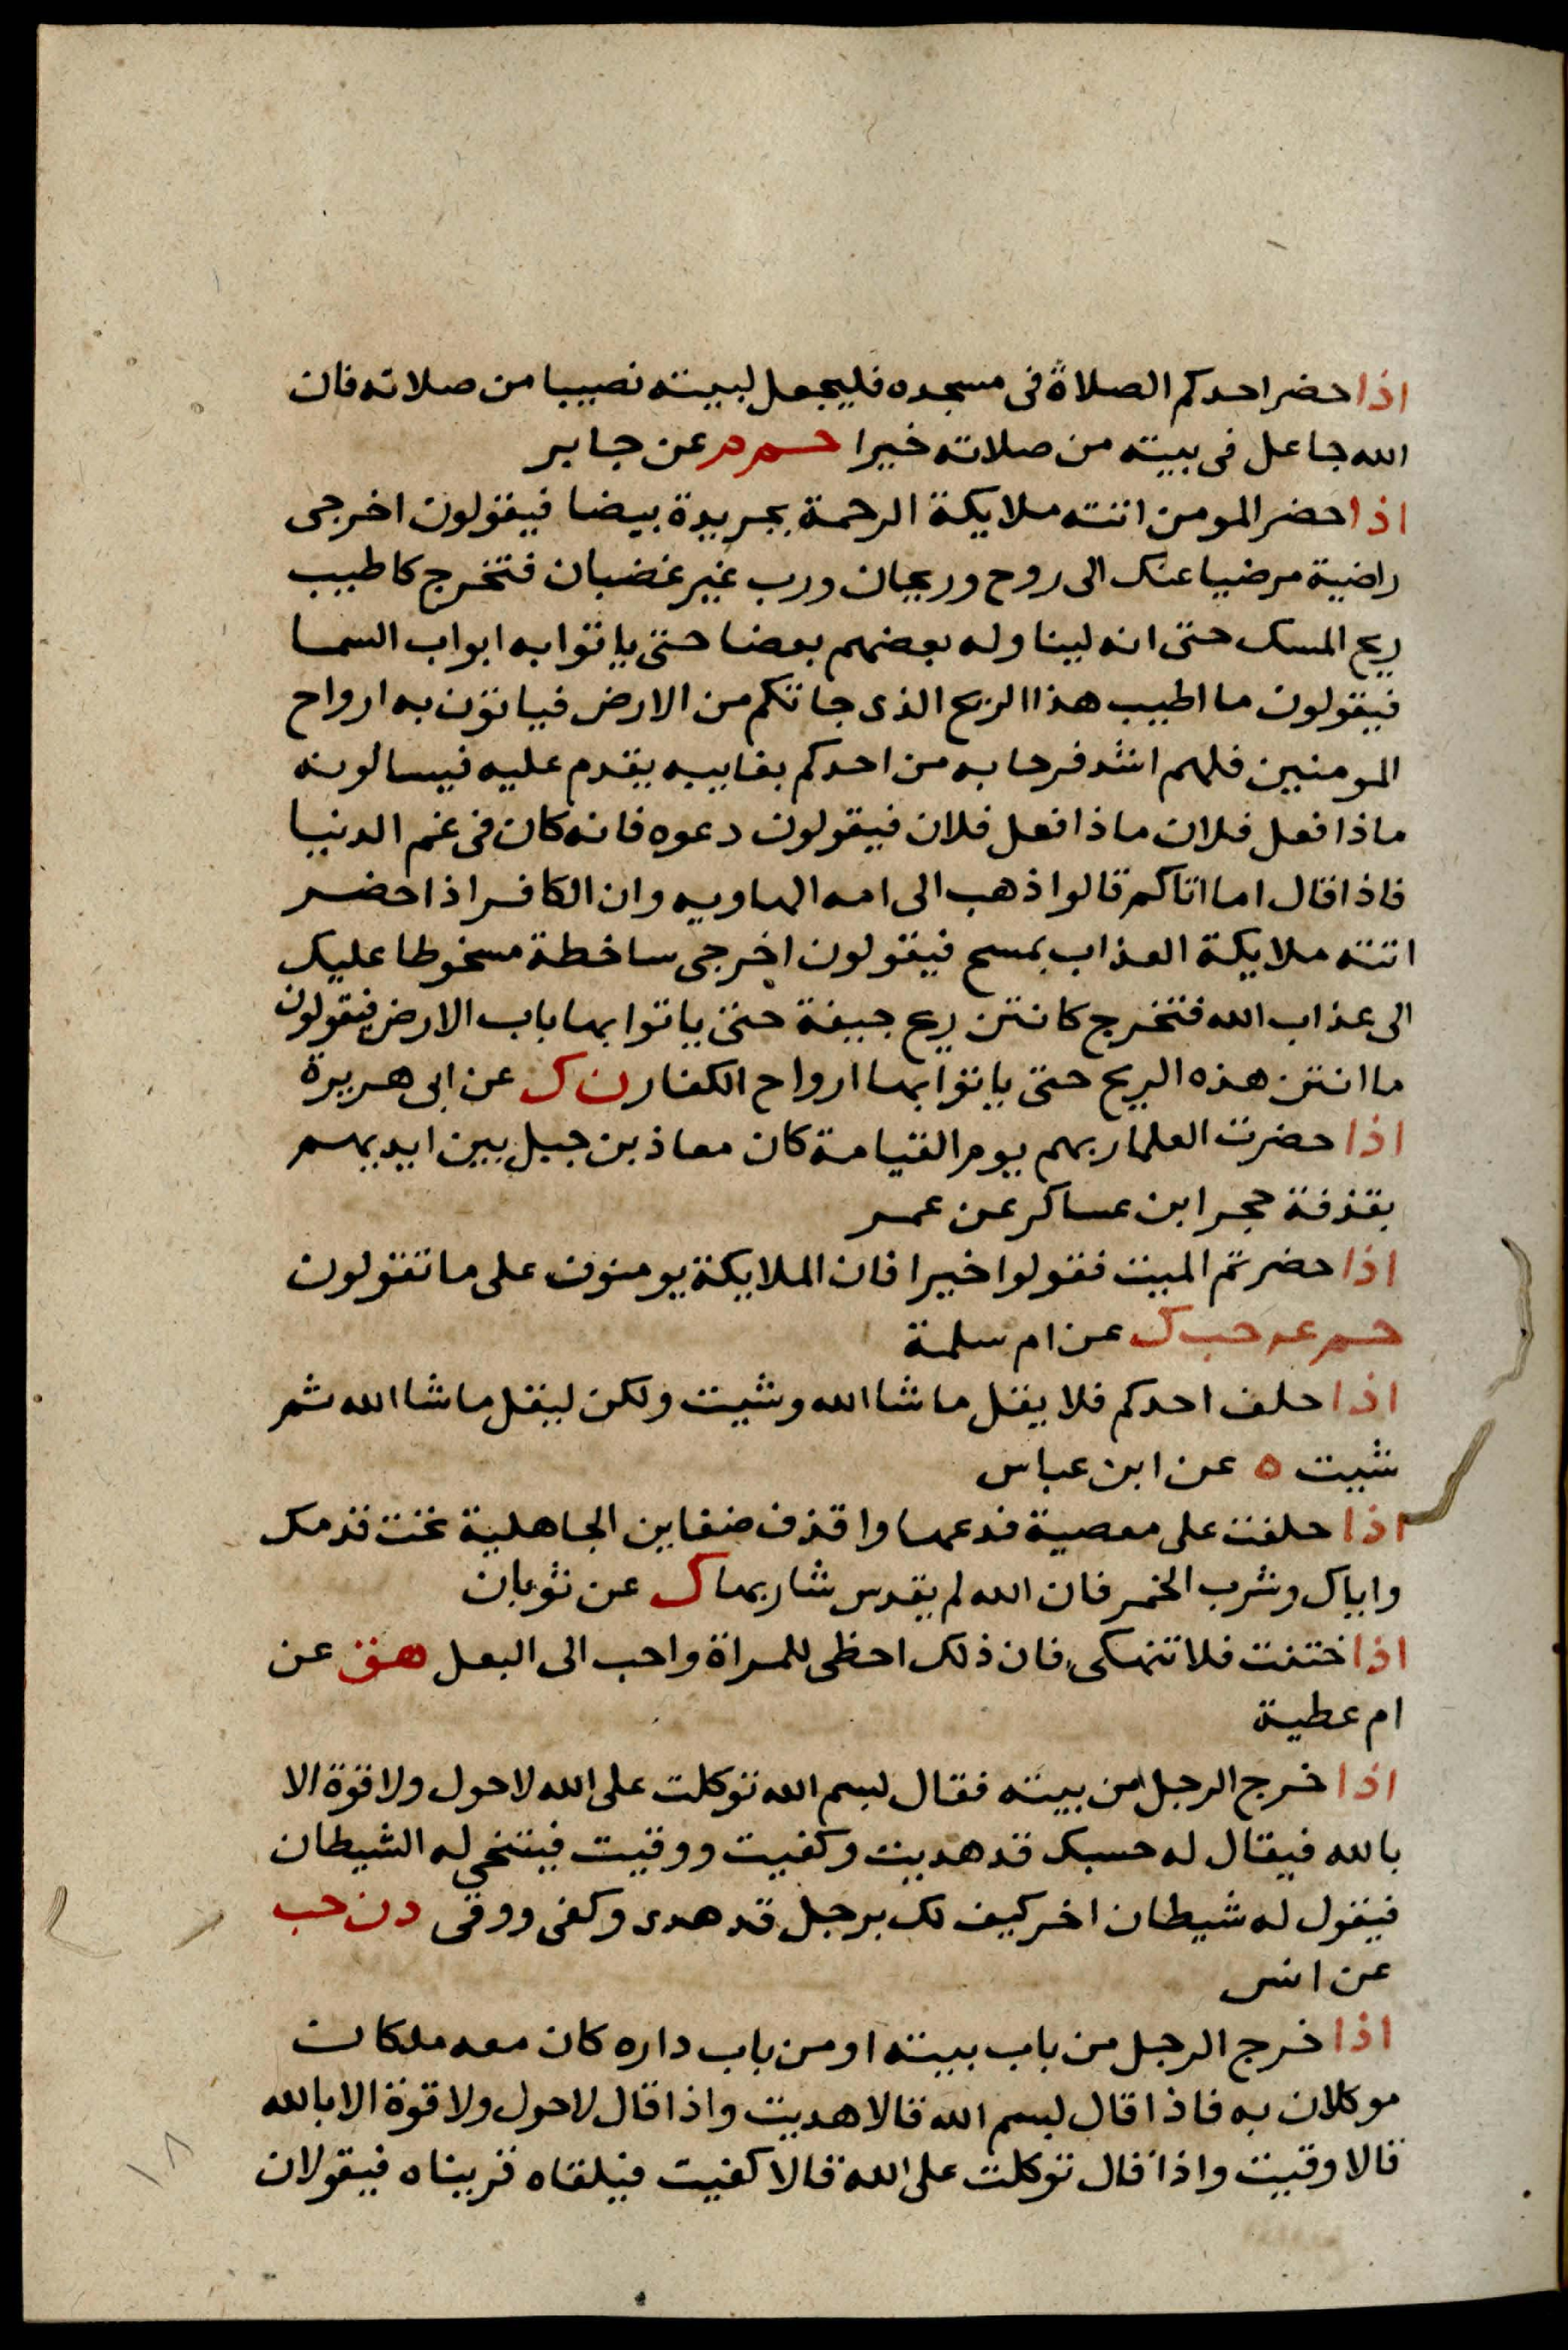 اذا حضر احدكم الصلاة فى مسجده فليجعل لبيته نصيبا من صلاته فان
الله جاعل فى بيته من صلاته خيرا حم م عن جابر
اذا حضر المومن اتته ملايكة الرحمة بجريدة بيضا فيقولون اخرجى
راضية مرضيا عنك الى روح وريحان ورب غير غضبان فتخرج كاطيب
ريح المسك حتى انه ليناوله بعضهم بعضا حتى ياتوا به ابواب السما
فيقولون ما اطيب هذا الريح الذى جاتكم من الارض فياتون به ارواح
المومنين فلهم اشد فرحا به من احدكم بغايبه يقدم عليه فيسالونه
ماذا فعل فلان ماذا فعل فلان فيقولون دعوه فانه كان فى غم الدنيا
فاذا قال اما اتاكم قالوا ذهب الى امه الهاويه وان الكافر اذا حضر
اتته ملايكة العذاب بمسح فيقولون اخرجى ساخطة مسخوطا عليك
الى عذاب الله فتخرج كانتن ريح جيفة حتى ياتوا بها باب الارض فيقولون
ما انتن هذه الريح حتى ياتوا بها ارواح الكفار ن ك عن ابى هريرة
اذا حضرت العلما ربهم يوم القيامة كان معاذ بن جبل بين ايديهم
بقذفة حجر ابن عساكر عن عمر
اذا حضرتم الميت فقولوا خيرا فان الملايكة يومنون على ما تقولون
حم عه حب ك عن ام سلمة
اذا حلف احدكم فلا يقل ما شا الله وشيت ولكن ليقل ما شا الله ثم
شيت ه عن ابن عباس
اذا حلفت على معصية فدعها واقذف ضغاين الجاهلية تحت قدمك
واياك وشرب الخمر فان الله لم يقدس شاربها ك عن ثوبان
اذا ختنت فلا تنهكى فان ذلك احظى للمراة واحب الى البعل هق عن
ام عطية
اذا خرج الرجل من بيته فقال بسم الله توكلت على الله لاحول ولا قوة الا
بالله فيقال له حسبك قد هديت وكفيت ووقيت فيتنحى له الشيطان
فيقول له شيطان اخر كيف لك برجل قد هدى وكفى ووقى د ن حب
عن انس
اذا خرج الرجل من باب بيته او من باب داره كان معه ملكان
موكلان به فاذا قال بسم الله قالا هديت واذا قال لاحول ولا قوة الا بالله
قالا وقيت واذا قال توكلت على الله قالا كفيت فيلقاه قريناه فيقولان
١٨